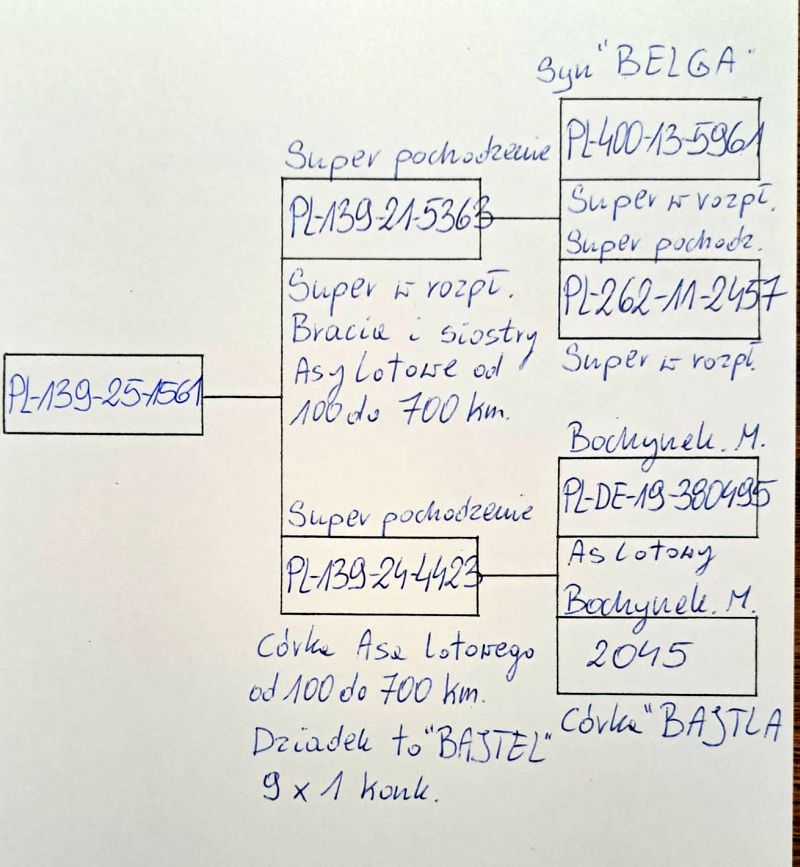 Syn "BELGA"
PL-400-13-5961
Super w rozpł.
Super pochodzenie
PL-139-21-5363
Super w rozpł.
Bracia i siostry
Asy Lotowe od
100 do 700 km.
Super pochodz.
PL-262-11-2457
Super w rozpł.
PL-139-25-1561
Bochynek. M.
PL-DE-19-380495
As Lotowy
Super pochodzenie
PL-139-24-4423
Córka Asa Lotowego
od 100 do 700 km.
Dziadek to "BAJTEL"
9 x 1 konk.
Bochynek. M.
2045
Córka "BAJTLA